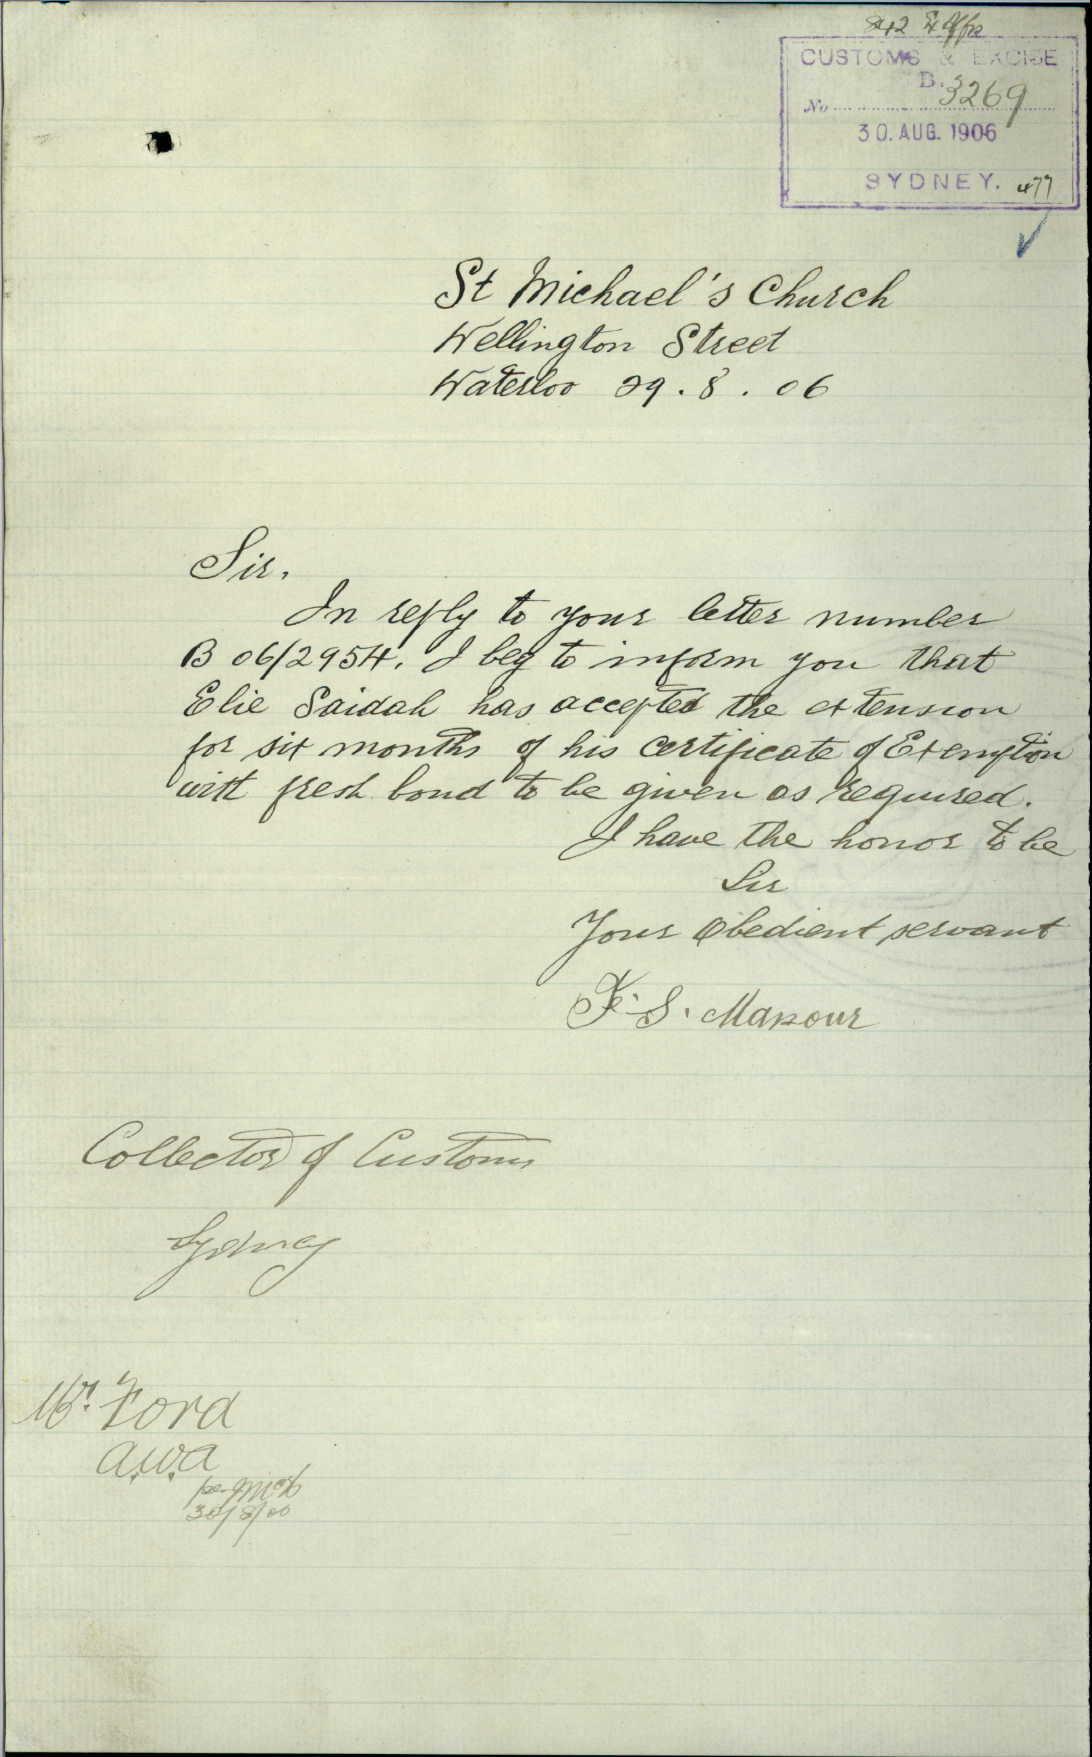 CUSTOMS & EXCISE
B. 3269
No
30. AUG. 1906
SYDNEY. 477
St Michael's Church
Wellington Street
Waterloo 29. 8. 06
Sir,
In reply to your letter number
B 06/2954. I beg to inform you that
Elie Saidah has accepted the extension
for six months of his certificate of Exemption
with fresh bond to be given as required.
I have the honor to be
Sir
Your Obedient servant
F. S. Mansour
Collector of Customs
Sydney
Mr. Ford
a.w.a
30/8/06